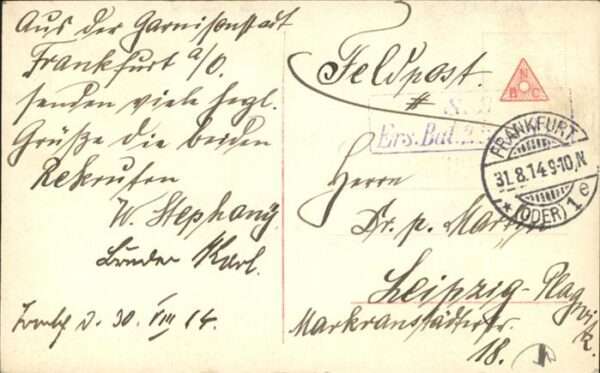 Aus der Garnisonstadt
Frankfurt a/O.
senden viele herzl.
Grüße die beiden
Rekruten
W. Stephany
Bruder Karl.
d. 30. VIII 14.
Feldpost.
Ers. Bat.
N
B C
FRANKFURT
31.8.14.9-10.N
* (ODER) 1 e
Herrn
Dr. p.
Leipzig-Plagwitz
Markranstädterstr.
18. I